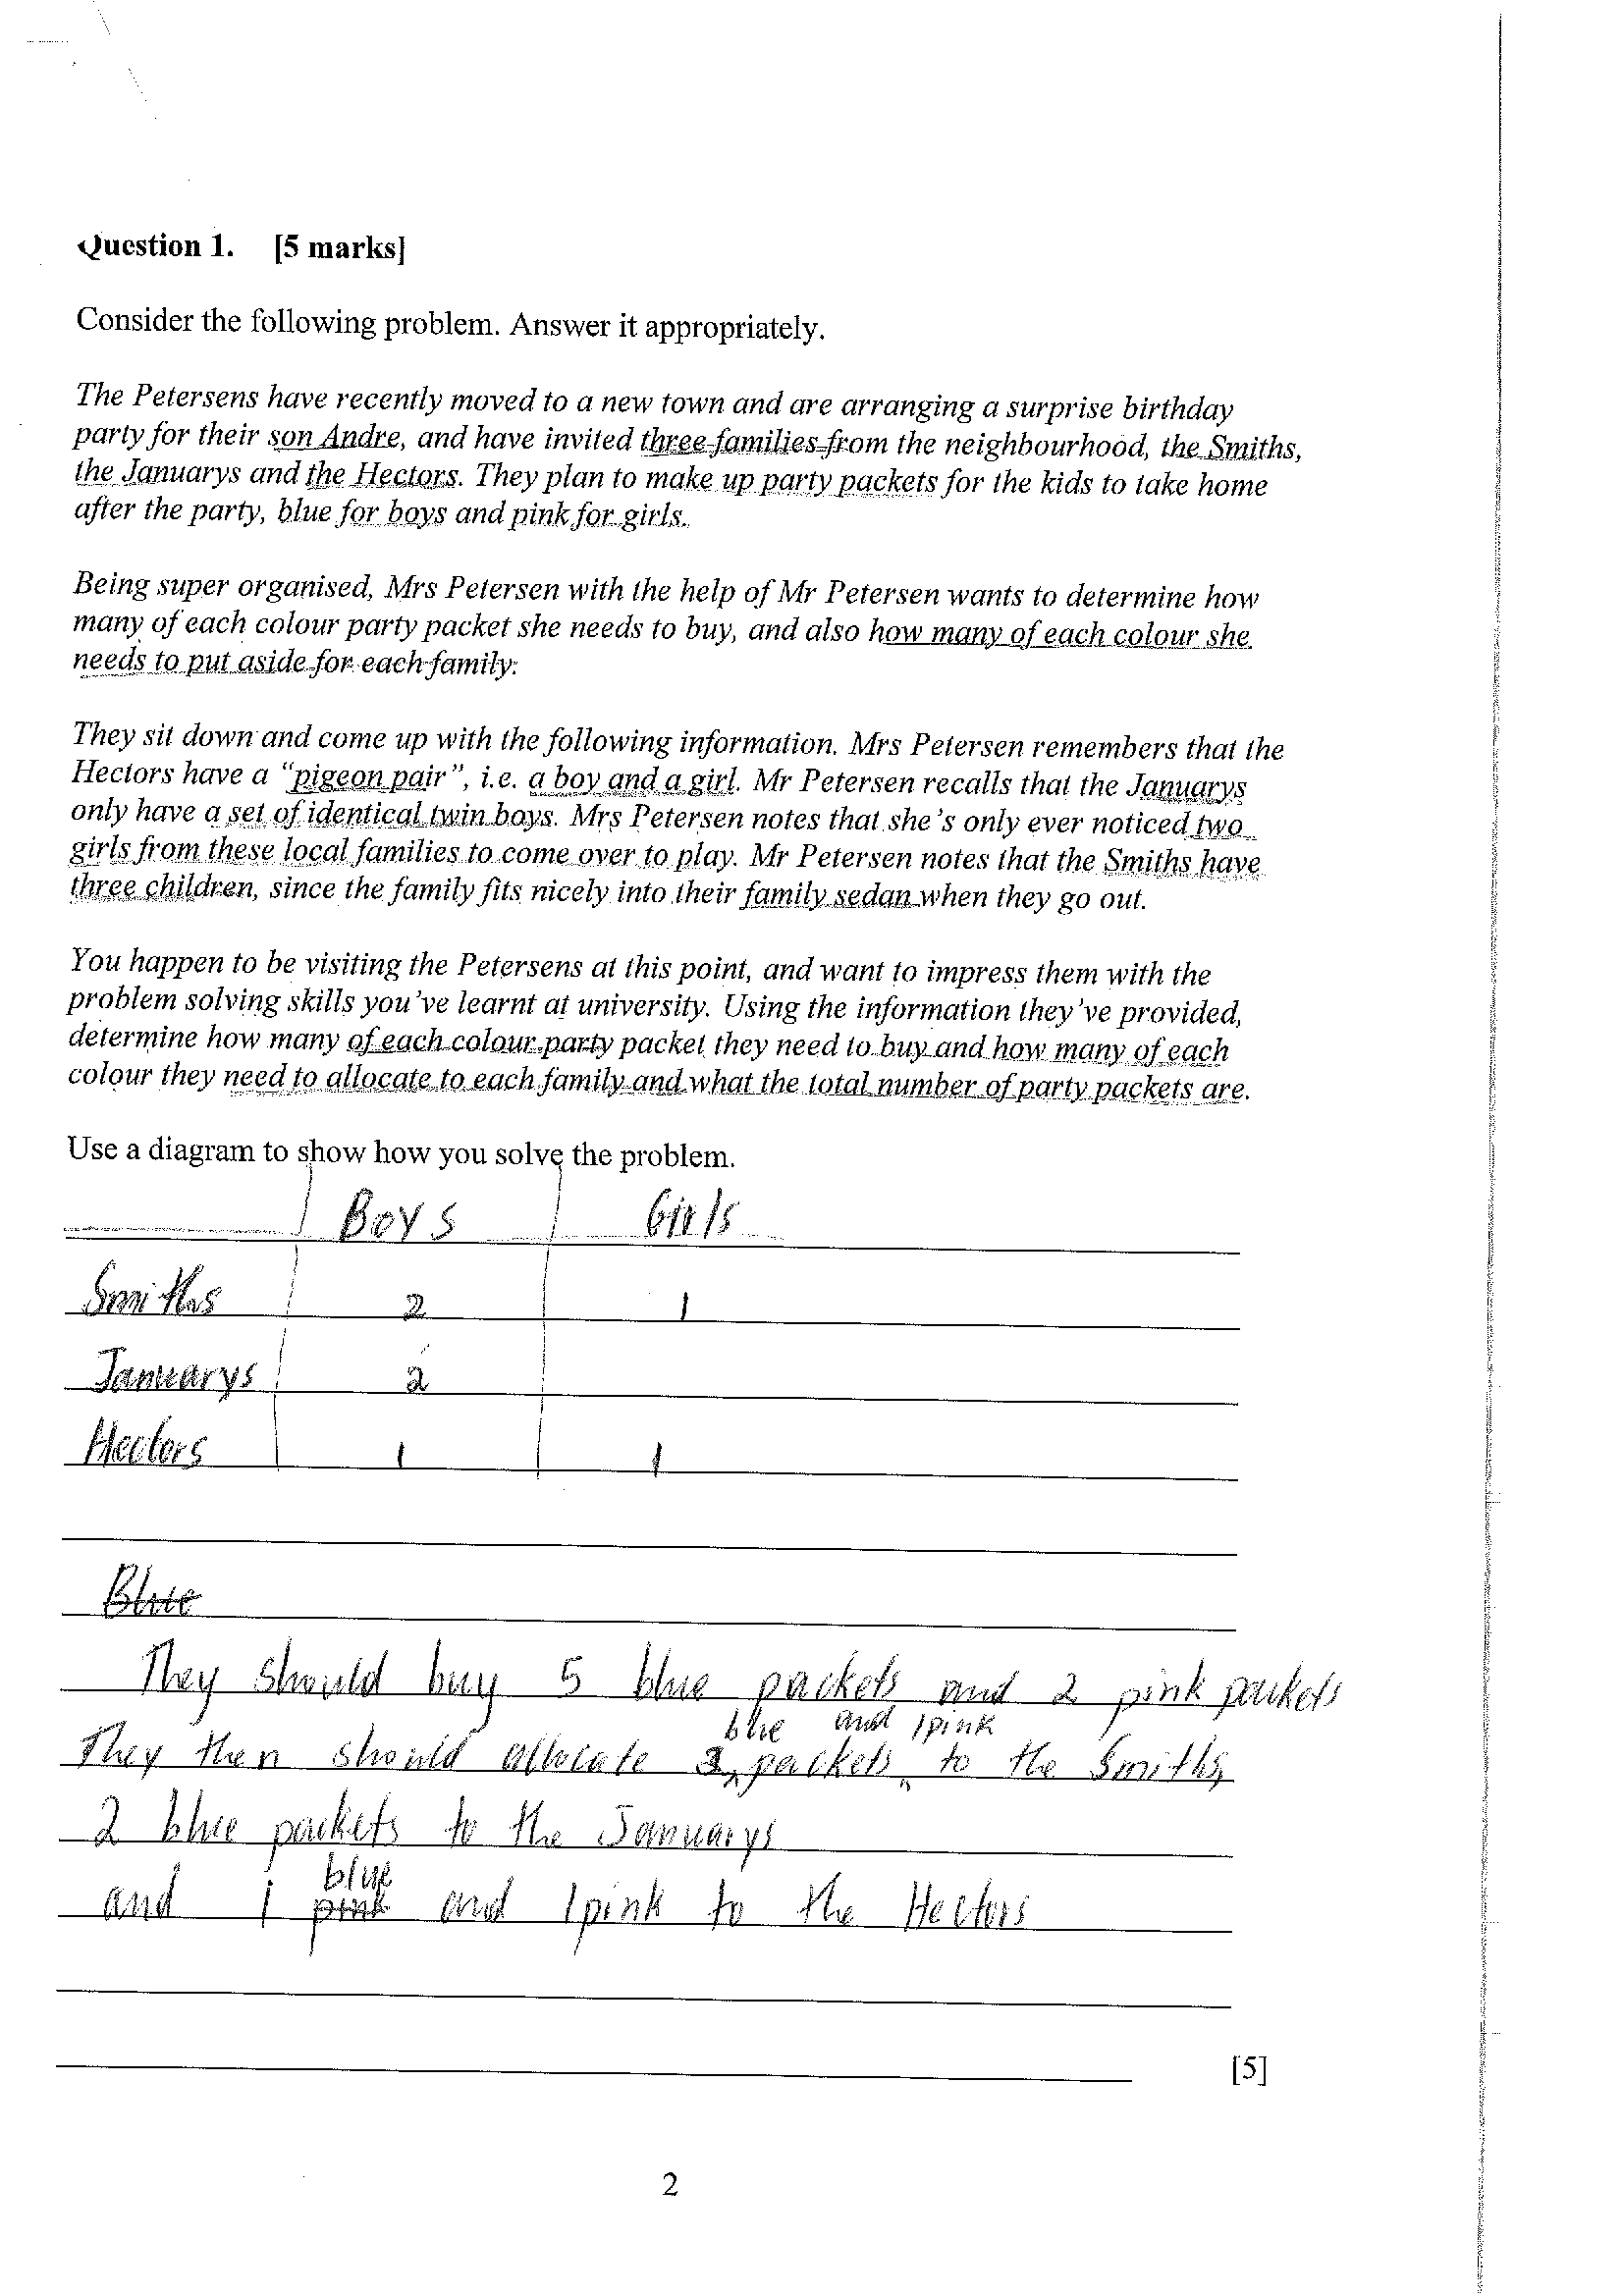 Question 1. [5 marks]
Consider the following problem. Answer it appropriately.
The Petersens have recently moved to a new town and are arranging a surprise birthday
party for their son Andre, and have invited three families from the neighbourhood, the Smiths,
the Januarys and the Hectors. They plan to make up party packets for the kids to take home
after the party, blue for boys and pink for girls.
Being super organised, Mrs Petersen with the help of Mr Petersen wants to determine how
many of each colour party packet she needs to buy, and also how many of each colour she
needs to put aside for each family.
They sit down and come up with the following information. Mrs Petersen remembers that the
Hectors have a “pigeon pair”, i.e. a boy and a girl. Mr Petersen recalls that the Januarys
only have a set of identical twin boys. Mrs Petersen notes that she’s only ever noticed two
girls from these local families to come over to play. Mr Petersen notes that the Smiths have
three children, since the family fits nicely into their family sedan when they go out.
You happen to be visiting the Petersens at this point, and want to impress them with the
problem solving skills you’ve learnt at university. Using the information they’ve provided,
determine how many of each colour party packet they need to buy and how many of each
colour they need to allocate to each family and what the total number of party packets are.
Use a diagram to show how you solve the problem.
Boys Girls
Smiths 2 1
Januarys 2
Hectors 1 1
Blue
They should buy 5 blue packets and 2 pink packets
blue and 1 pink
They then should allocate 2 packets to the Smiths
2 blue packets to the Januarys
blue
and 1 pink and 1 pink to the Hectors
[5]
2